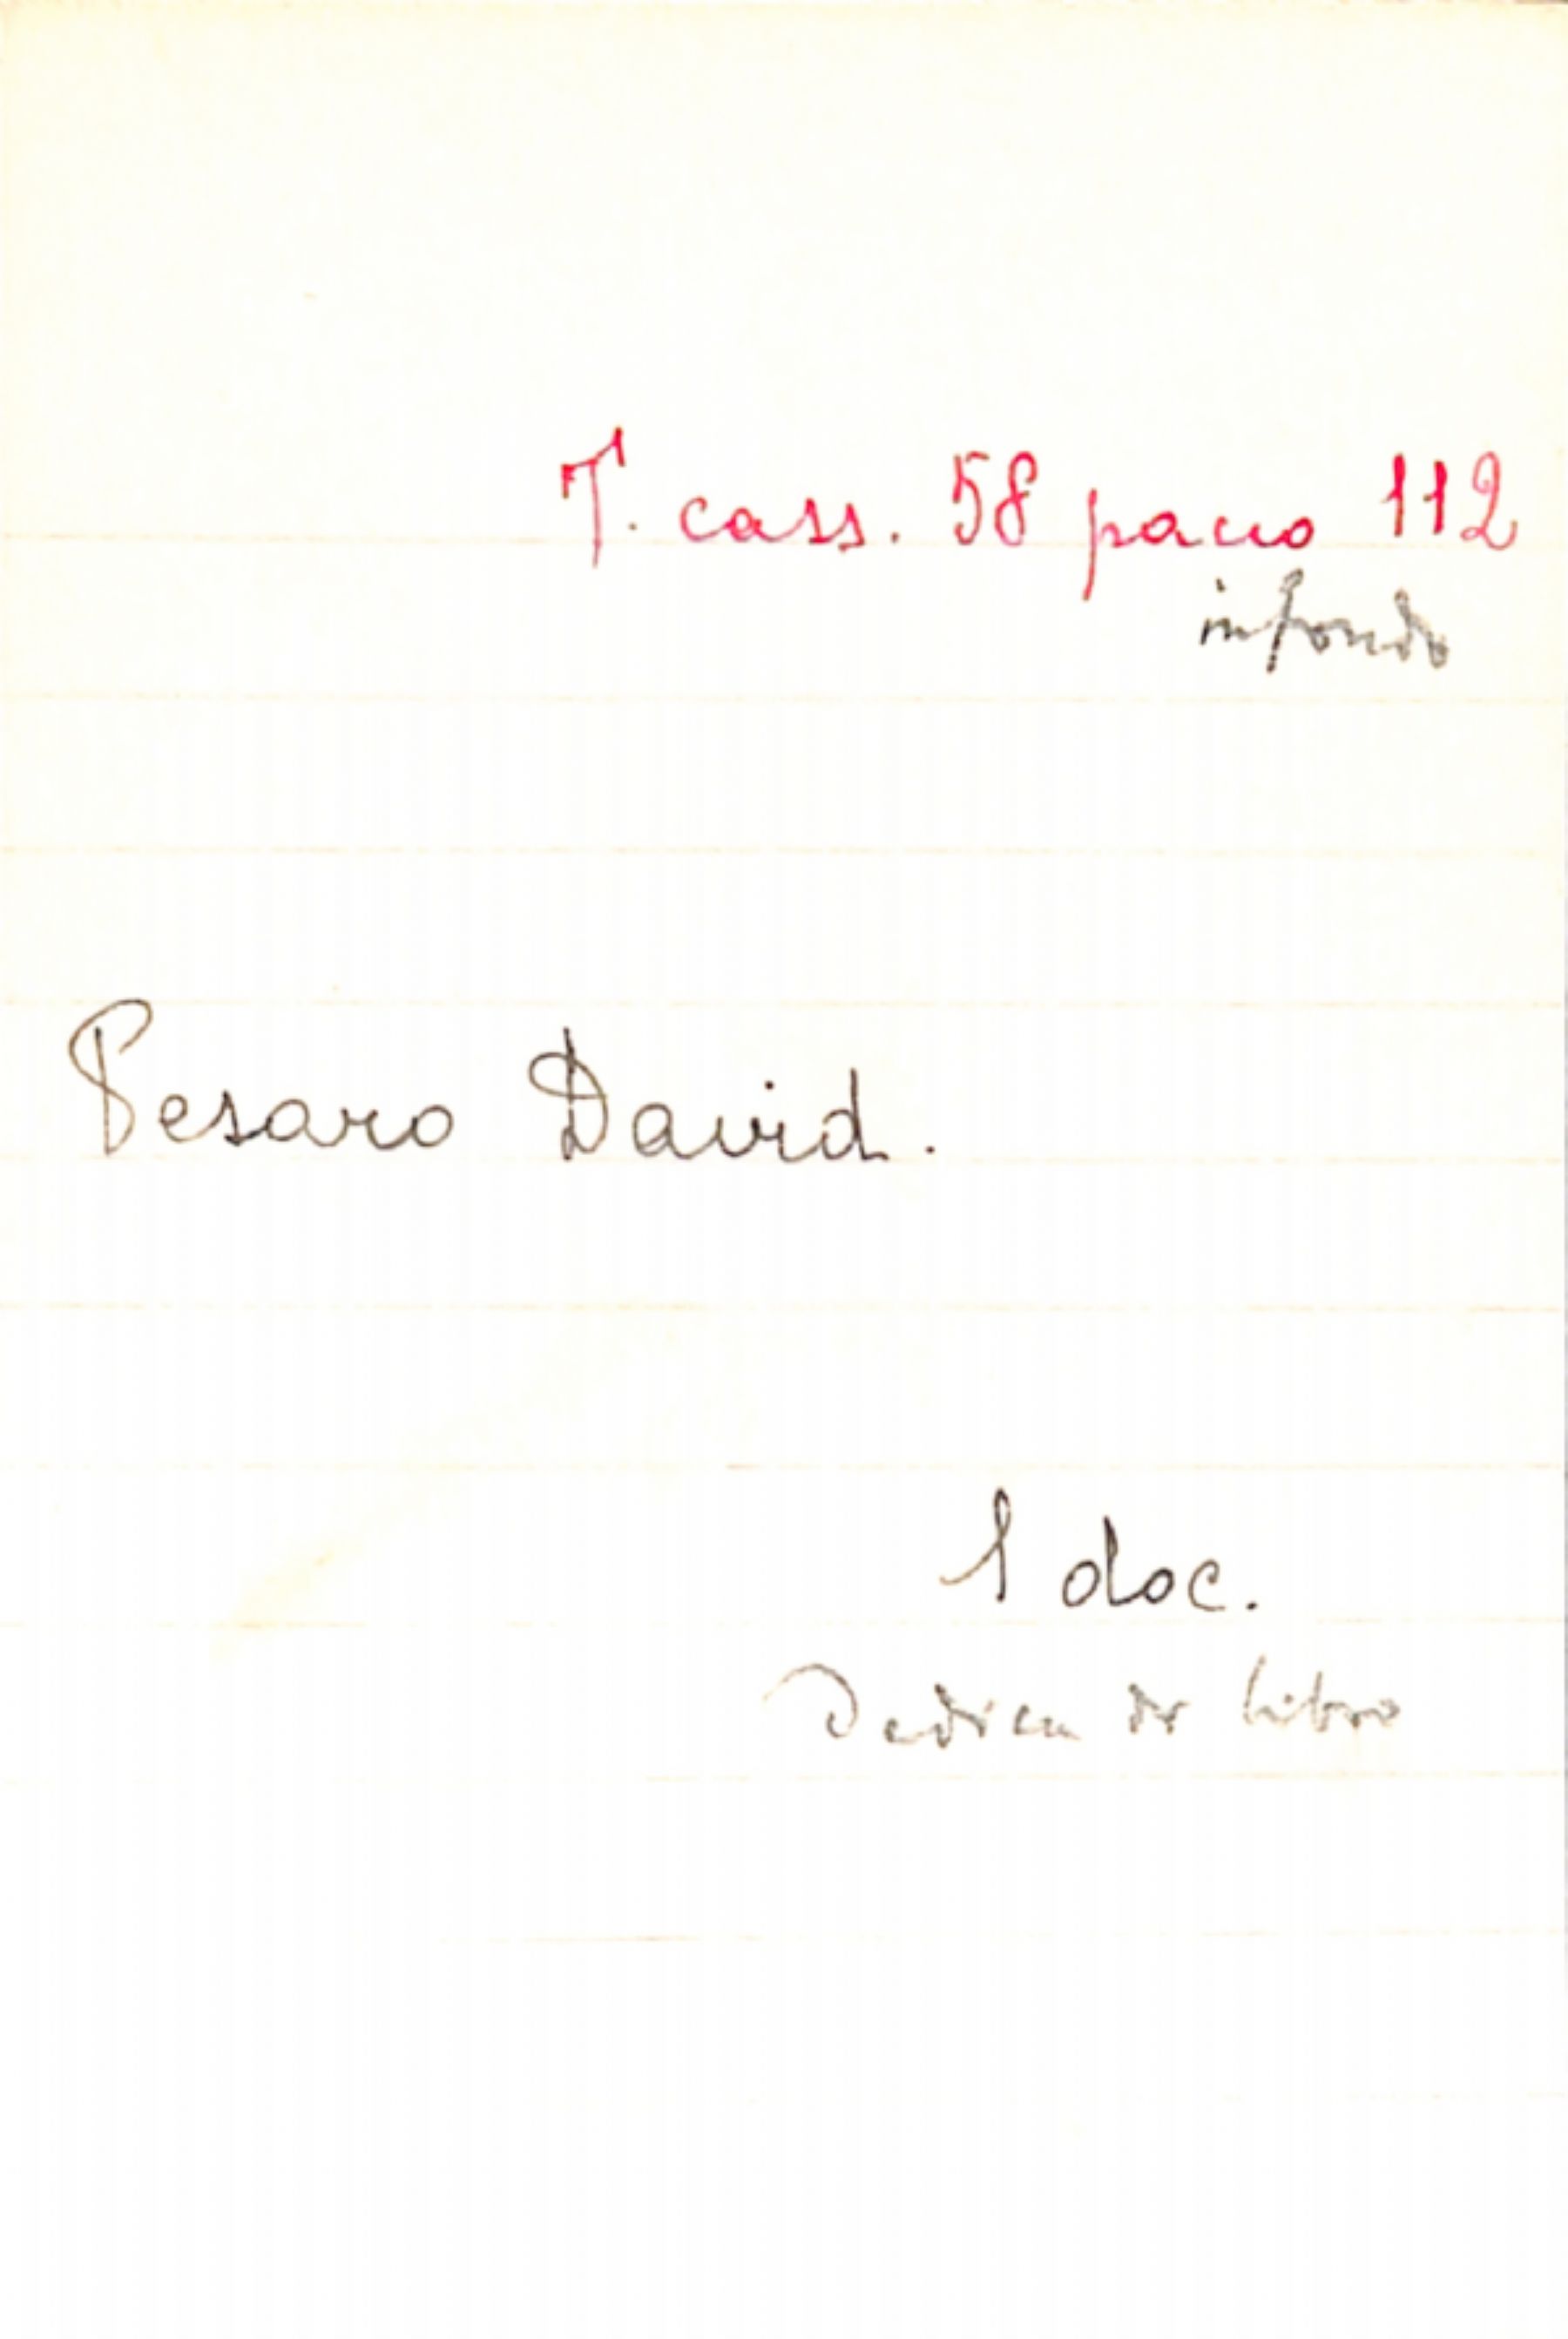 T. cass. 58 pacco 112
in fondo
Pesaro David.
1 doc.
Dedica di libro